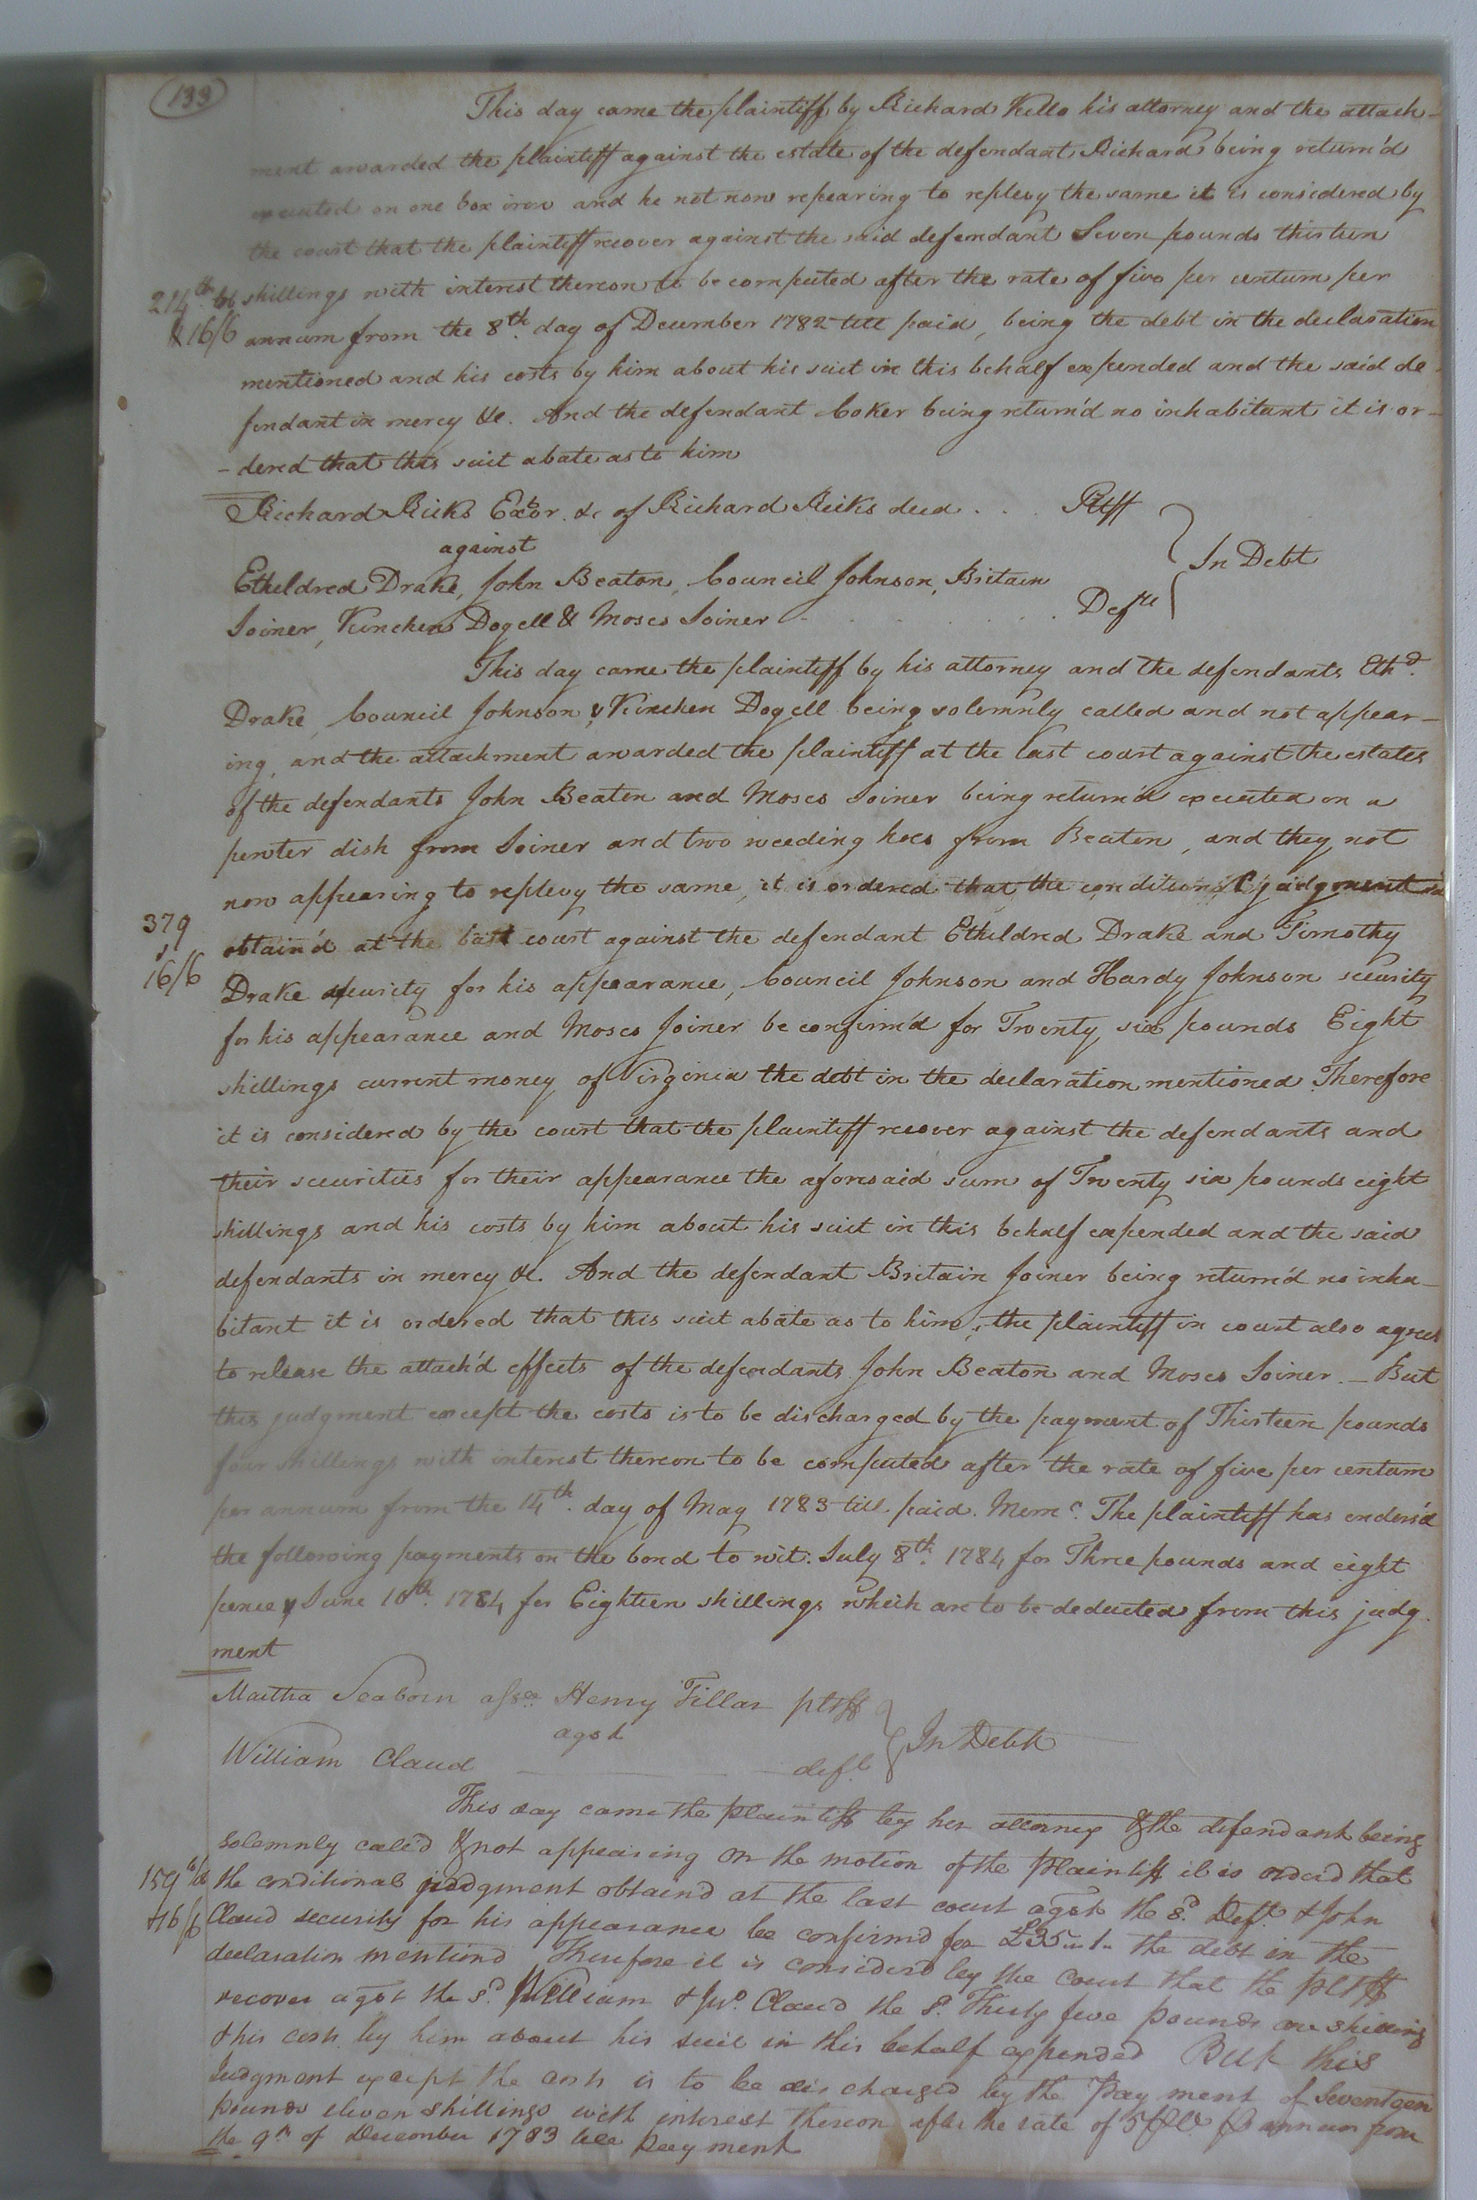 133
This day came the plaintiff by Richard Kello his attorney and the attach-
ment awarded the plaintiff against the estate of the defendant Richard being return'd
executed on one box iron and he not now repearing to replevy the same it is considered by
the court that the plaintiff recover against the said defendant Seven pounds thirteen
shillings with interest thereon to be computed after the rate of five per centum per
214
&16/6
annum from the 8th. day of December 1782 till paid, being the debt in the declaration
mentioned and his costs by him about his suit in this behalf expended and the said de-
fendant in mercy &c. And the defendant Coker being return'd no inhabitant it is or-
-dered that this suit abate as to him
Richard Ricks Exor. &c of Richard Ricks decd . . . Pltff
against
In Debt
Etheldred Drake, John Beaton, Council Johnson, Britain
Joiner, Kinchen Dogell & Moses Joiner . . . . . . Defts
This day came the plaintiff by his attorney and the defendants Ethd.
Drake, Council Johnson & Kinchen Dogell being solemnly called and not appear-
ing, and the attachment awarded the plaintiff at the last court against the estates
of the defendants John Beaton and Moses Joiner being return'd executed on a
pewter dish from Joiner and two weeding hoes from Beaton, and they not
now appearing to replevy the same, it is ordered that the conditional judgment
379
&
16/6
obtain'd at the last court against the defendant Etheldred Drake and Timothy
Drake security for his appearance, Council Johnson and Hardy Johnson security
for his appearance and Moses Joiner be confirm'd for Twenty six pounds Eight
shillings current money of Virginia the debt in the declaration mentioned Therefore
it is considered by the court that the plaintiff recover against the defendants and
their securities for their appearance the aforesaid sum of Twenty six pounds eight
shillings and his costs by him about his suit in this behalf expended and the said
defendants in mercy &c. And the defendant Britain Joiner being return'd no inha-
bitant it is ordered that this suit abate as to him, the plaintiff in court also agrees
to release the attach'd effects of the defendants John Beaton and Moses Joiner. — But
this judgment except the costs is to be discharged by the payment of Thirteen pounds
four shillings with interest thereon to be computed after the rate of five per centum
per annum from the 14th. day of May 1783 till paid. Memo. The plaintiff has endors'd
the following payments on the bond to wit: July 8th. 1784 for Three pounds and eight
pence & June 10th. 1784 for Eighteen shillings which are to be deducted from this judg-
ment
Martha Seaborn asse. Henry Tillar pltff
agst
In Debt
William Claud deft
This day came the plaintiff by her attorney & the defendant being
solemnly call'd & not appearing on the motion of the plaintiff it is orderd that
159
&16/6
the conditional judgment obtaind at the last court agst the sd. Deft. & John
Claud security for his appearance be confirmd for £35..1.. the debt in the
declaration mentiond Therefore it is considerd by the Court that the pltff
recover agst the sd. William & Jno. Claud the sd. Thirty five pounds one shilling
& his costs by him about his suit in this behalf expended But this
Judgment except the costs is to be discharged by the Payment of Seventeen
pounds eleven shillings with interest thereon after the rate of 5 annum from
the 9th of December 1783 till payment